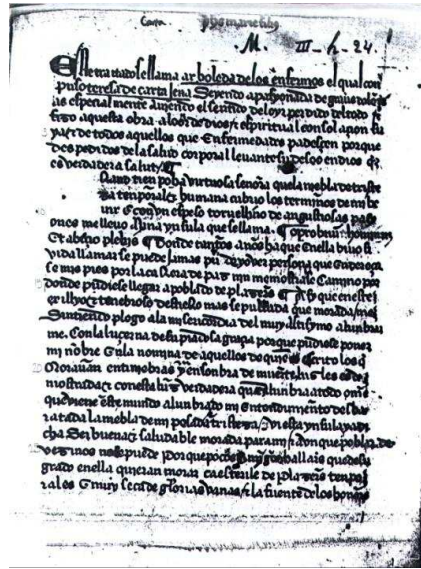 M. III - h - 24.
Este tratado se llama arboleda delos enfermos el qual con
puso teresa de cartajena Seyendo apasyonada de graues dolençi
as especial mente auiendo el sentido del oyr perdido del todo E
fizo aquesta obra a loor de dios E espiritual consolaçion suya
E de todos aquellos que Enfermedades padesçen porque
despedidos dela salud corporal leuanten su deseo en dios que
es verdadera salut
tienpo ha virtuosa señora que la niebla de triste
za tenporal E humana cubrio los terminos de mi be
uir E con vn espeso toruellino de angustiosas pa
onçe me lleuo a vna ynsula que se llama oprobrium hominum
Et abiecio plebis Donde tantos años ha que Enella biuo si
vida llamar se puede jamas pude yo ver persona que Endereçase
mis pies por la carrera de paz nin me mostrase Camino por
donde pudiese llegar a poblado de plazeres Asy que en este
exillyo E tenebroso destierro mas sepultada que morada me
Sintiendo plogo ala misericordia del muy altysimo alunbrar
me Con la luçerna de su piadosa graçia porque pudiese poner
mi nonbre Enla nomina de aquellos de quien es escrito los que
Morauan en tiniebras y en sonbra de muerte luz les es de
mostrada E con esta luz verdadera que alunbra a todo ome
que viene en este mundo alunbrado mi Entendimiento desba
ratada la niebla de mi pesada tristeza vi esta ynsula ya di
cha Ser buena E saludable morada para mi E aunque poblar de
vezinos no se puede porque pocos o ningunos hallareis que de su
grado en ella quieran morar ca esterile de plazeres tenpo
rales E muy seca de glorias vanas E la fuente delos honores